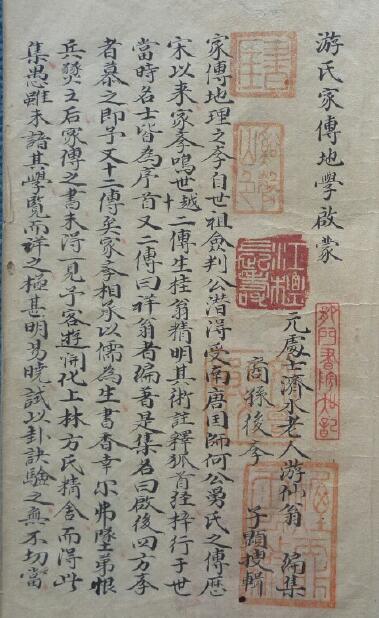 游氏家傳地學啟蒙
元處士濟水老人游仙翁 編集
裔孫後學 子顯搜輯
家傳地理之季自世祖僉判公潛得受南唐国師何公勇氏之傳歷
宋以来家季鳴世越十二傳生桂翁精明其術註釋狐首經梓行于世
當時名士皆為序首又二傳曰祥翁者編著是集名曰啟後四方季
者慕之即予又十二傳矣家季相承以儒為生書香幸尔弗墜弟恨
兵燹之后家傳之書未得一見予客遊開化上林方氏精舍而得此
集愚雖未諳其學覧而祥之極甚明易曉試以卦訣驗之無不切當